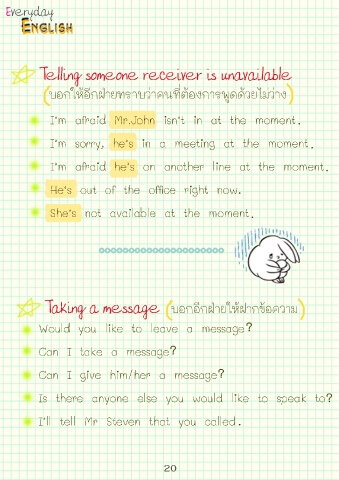 Everyday
ENGLISH
Telling someone receiver is unavailable
(บอกให้อีกฝ่ายทราบว่าคนที่ต้องการพูดด้วยไม่ว่าง)
I'm afraid Mr.John isn't in at the moment.
I'm sorry, he's in a meeting at the moment.
I'm afraid he's on another line at the moment.
He's out of the office right now.
She's not available at the moment.
Taking a message (บอกอีกฝ่ายให้ฝากข้อความ)
Would you like to leave a message?
Can I take a message?
Can I give him/her a message?
Is there anyone else you would like to speak to?
I'll tell Mr Steven that you called.
20